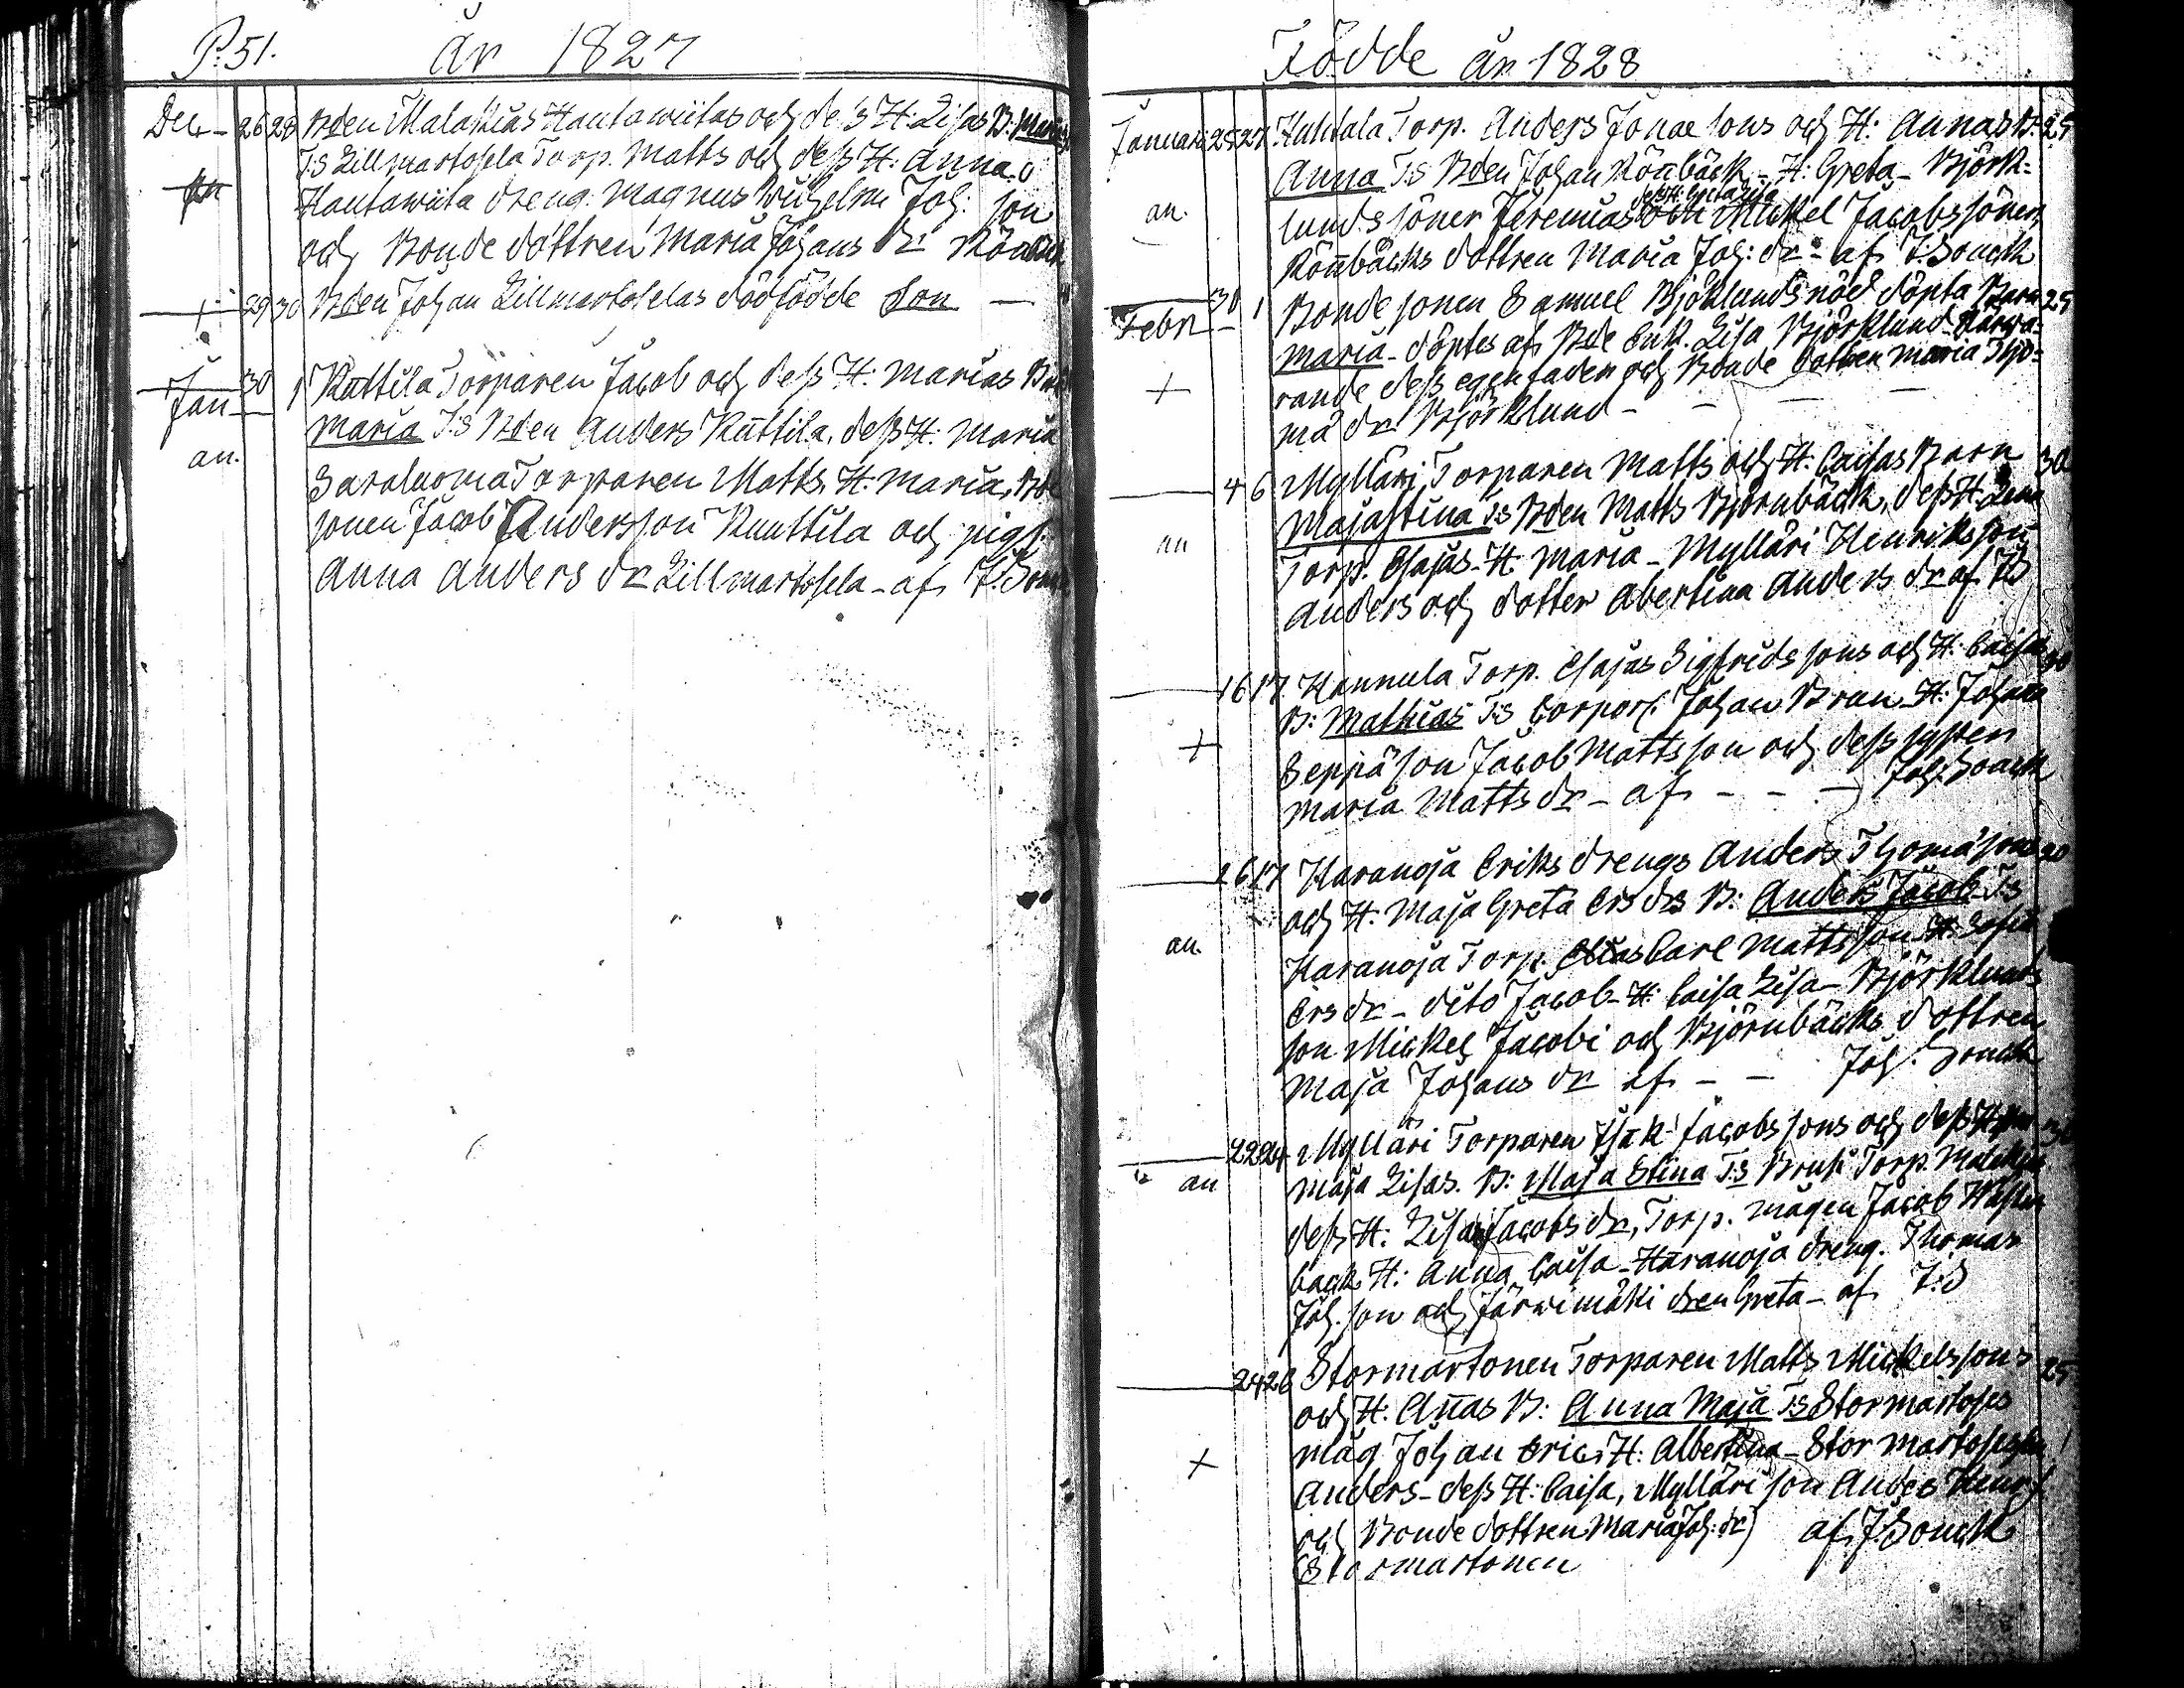 P. 51. År 1827
Dec - 26 28 Bden Malakias Hautawiitas och des H: Lisas B: Maria
T:S Lillmartosela Torp. Matts och dess H: Anna
Hautawiita dreng. Magnus Wilhelm Joh: son
och Bonde dottren Maria Johans dr Rönbäck
+ 29 30 Bden Johan Lillmartoselas dödfödde Son —
Jan 30 1 Kuttila Torparen Jacob och dess H: Marias Barn
an. Maria T:S Bden Anders Kuttila, dess H: Maria
Saraluoma Torparen Matts, H: Maria, Bde
sonen Jacob Andersson Kuuttila och pig.
Anna Anders dr Lillmartosela - af J. Sonck
Födde år 1828
Januari 25 27 Huhtala Torp. Anders Jonae sons och H: Annas B: 25
Anna T:S Bden Johan Rönbäck - H: Greta - Björk-
dess H: Greta Lisa
an. lunds söner Jeremias och Mickel Jacobs söner,
Rönbäcks dottren Maria Joh: dr - af J: Sonck
Febr 30 1 Bonde sonen Samuel Björklunds nöd döpta Barn 25
Maria - döptes af Bde Enk. Lisa Björklund - närva-
+ rande dess egen fader och Bonde dottren Maria Tho-
mä dr Björklund - - - -
4 6 Mylläri Torparen Matts och H: Caisas Barn 30
Majastina T:S Bden Matts Björnbäck, dess H: Lena
an Torp. Esajas - H: Maria - Mylläri Henriksson
Anders och dotter Abertina Anders dr af J:S
16 17 Hannula Torp. Esajas Sigfrids sons och H: Caisas 30
B: Mathias T:S Corpor. Johan Bran - H: Johana
+ Seppä son Jacob Mattsson och dess syster
Maria Matts dr - af - - - Joh. Sonck
16 17 Haranoja Eriks drengs Anders Thomä sons 20
och H: Maja Greta Ers drs B: Anders Jacob T:S
an. Haranoja Torp. Carl Mattsson H: Sofia
Ers dr - dito Jacob - H: Caisa Lisa - Björklunds
son Mickel Jacobi och Björnbäcks dottren
Maja Johans dr af - - Joh: Sonck
22 24 Mylläri Torparen Isak Jacobs sons och dess H:
an Maja Lisas. B: Maja Stina T:S Bruk Torp.
dess H: Lisa Jacobs dr, Torp. mågen Jacob
back H: Anna Caisa - Haranoja dreng. Thomas
Joh. son och Järwimäki dren Greta - af J:S
24 26 Stormartonen Torparen Matts Mickelssons 25
och H: Añas B: Anna Maja T:S Stormartoses
måg Johan Eric, H: Albertina - Stor
+ Anders - dess H: Caisa, Mylläri son Anders
och Bonde dottren Maria Joh: dr) af J. Sonck
Stormartonen